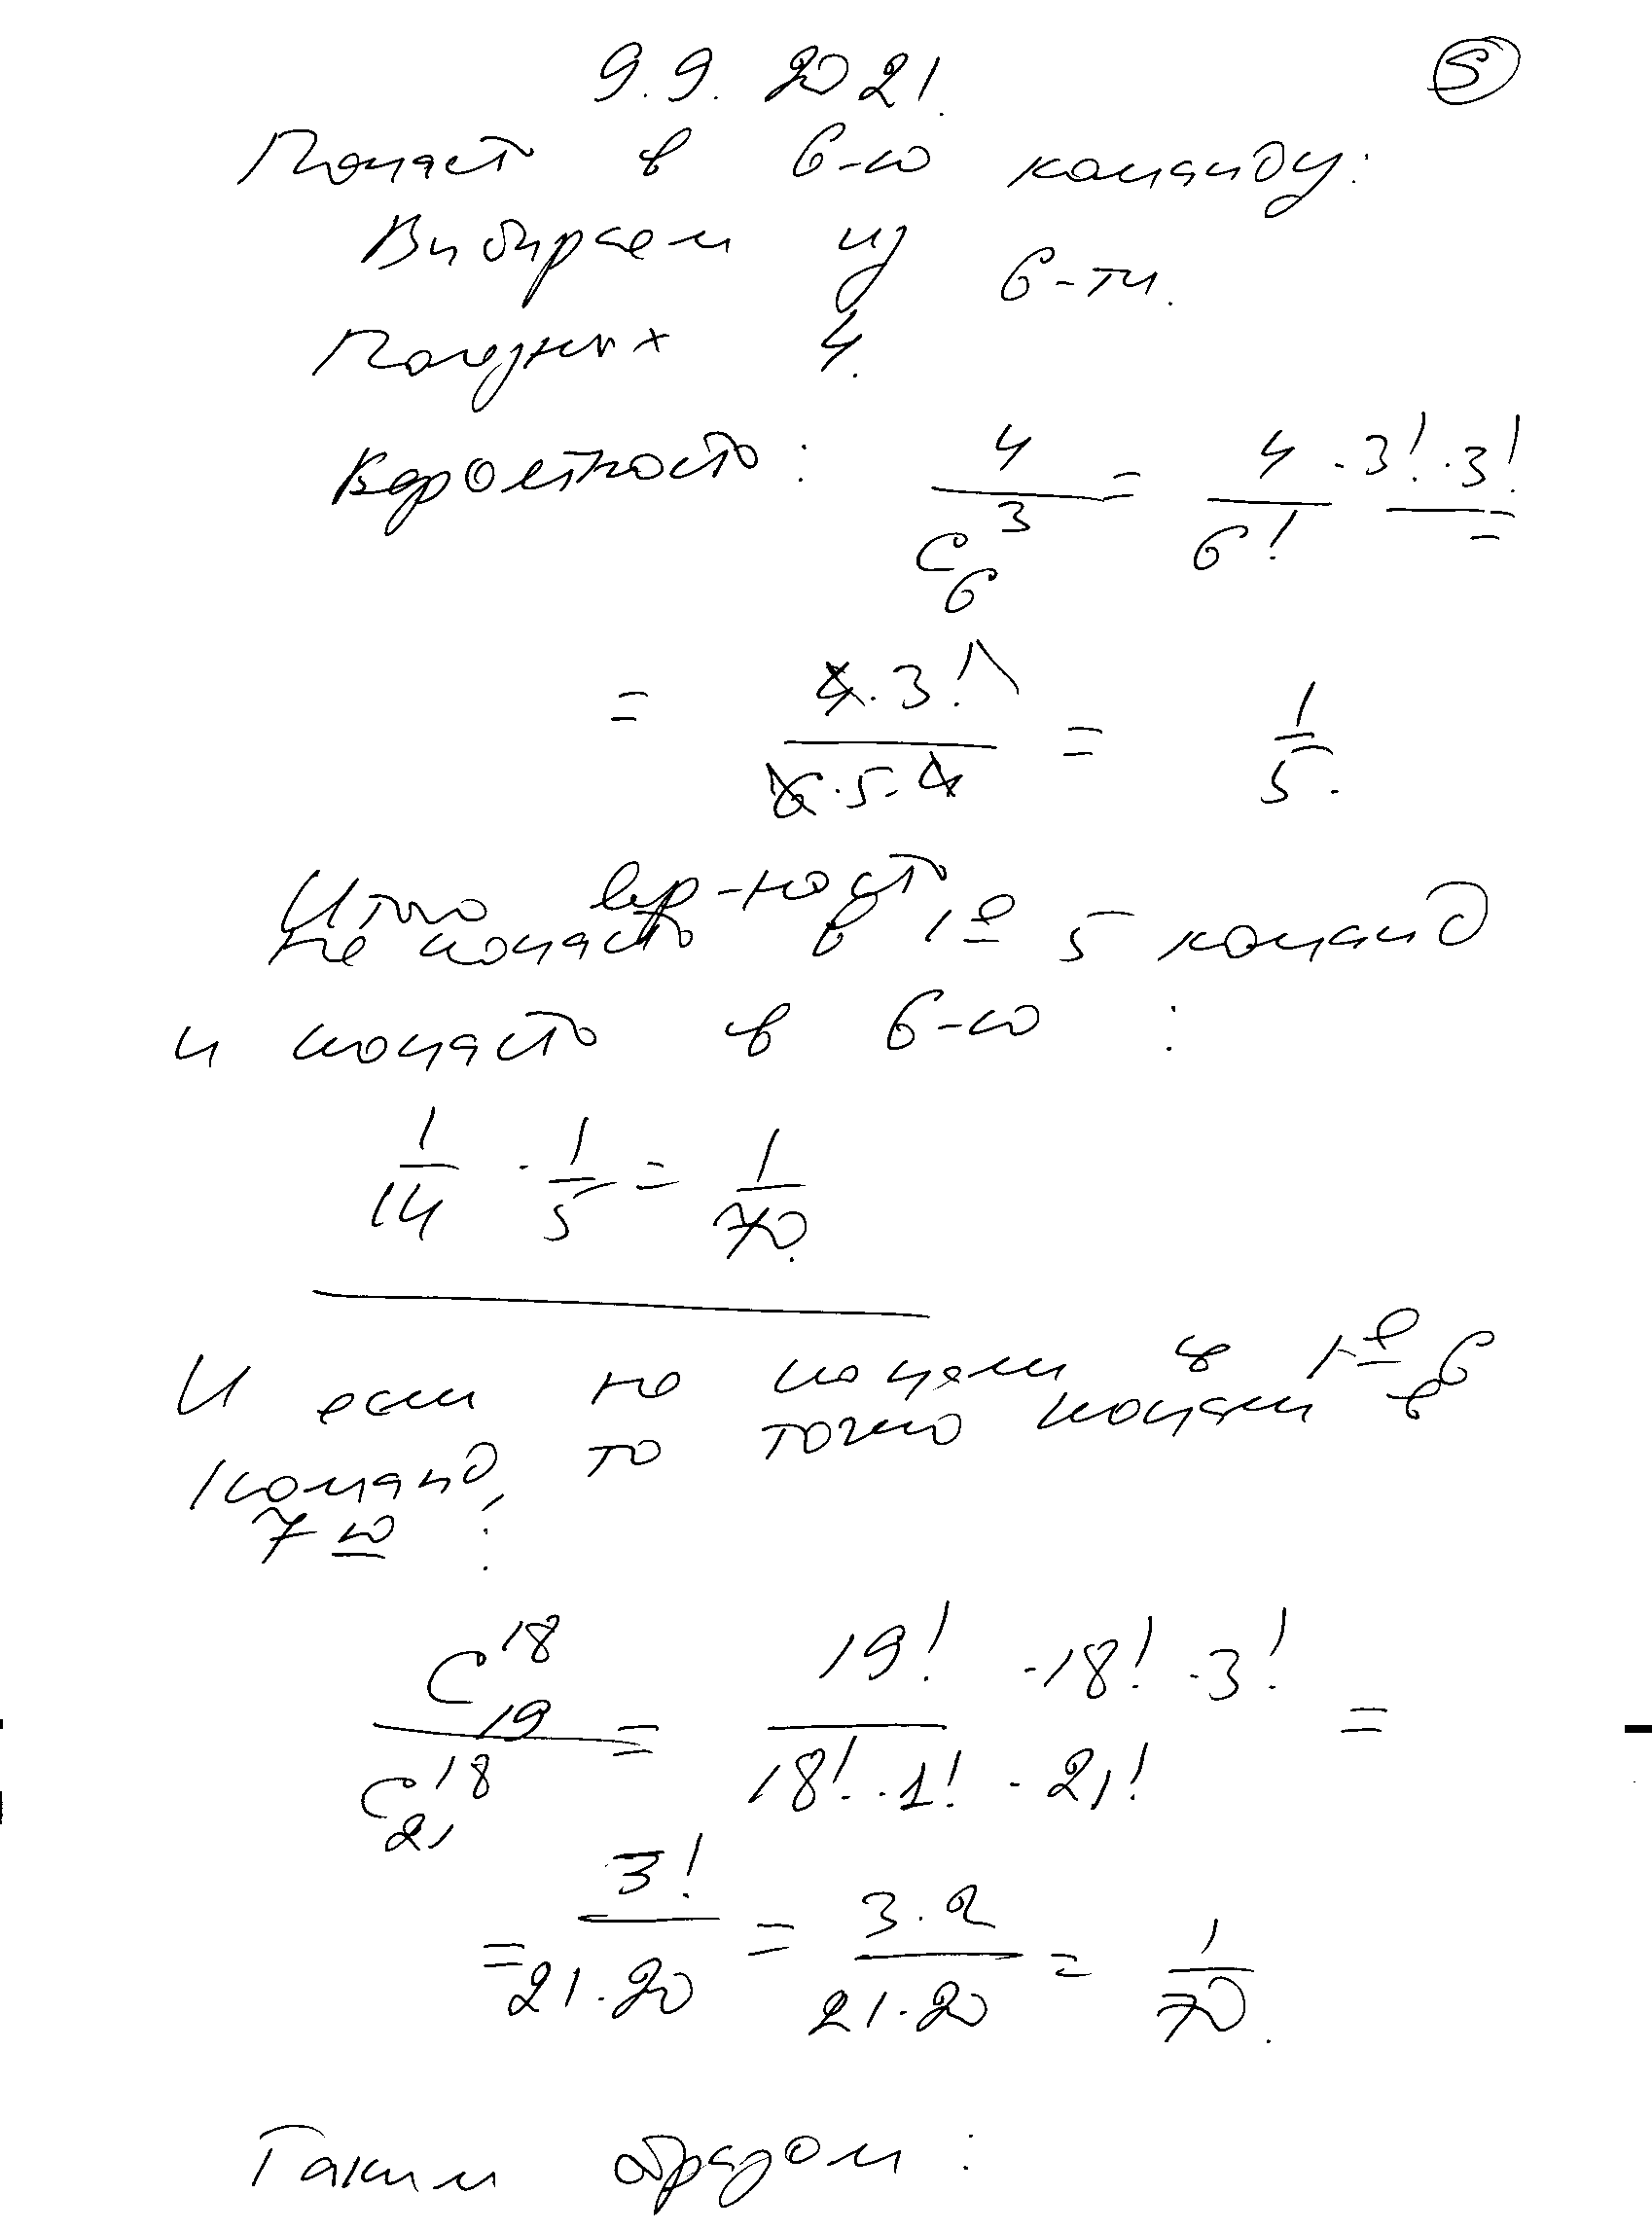 9.9.2021. 5
Попасть в 6-ю команду:
Выбираем из 6-ти.
Полезных 4.
Вероятность: 4 / C_6^3 = 4 · 3! · 3! / 6! =
= 4 · 3! / 6 · 5 · 4 = 1 / 5.
Итого вер-ность
не попасть в 1е 5 команд
и попасть в 6-ю :
1/14 · 1/5 = 1/70.
И если не попали в 1-е 6
команд, то точно попали в
7ю :
C_19^18 / C_21^18 = 19! · 18! · 3! / 18! · 1! · 21! =
= 3! / 21·20 = 3·2 / 21·20 = 1/70.
Таким образом :